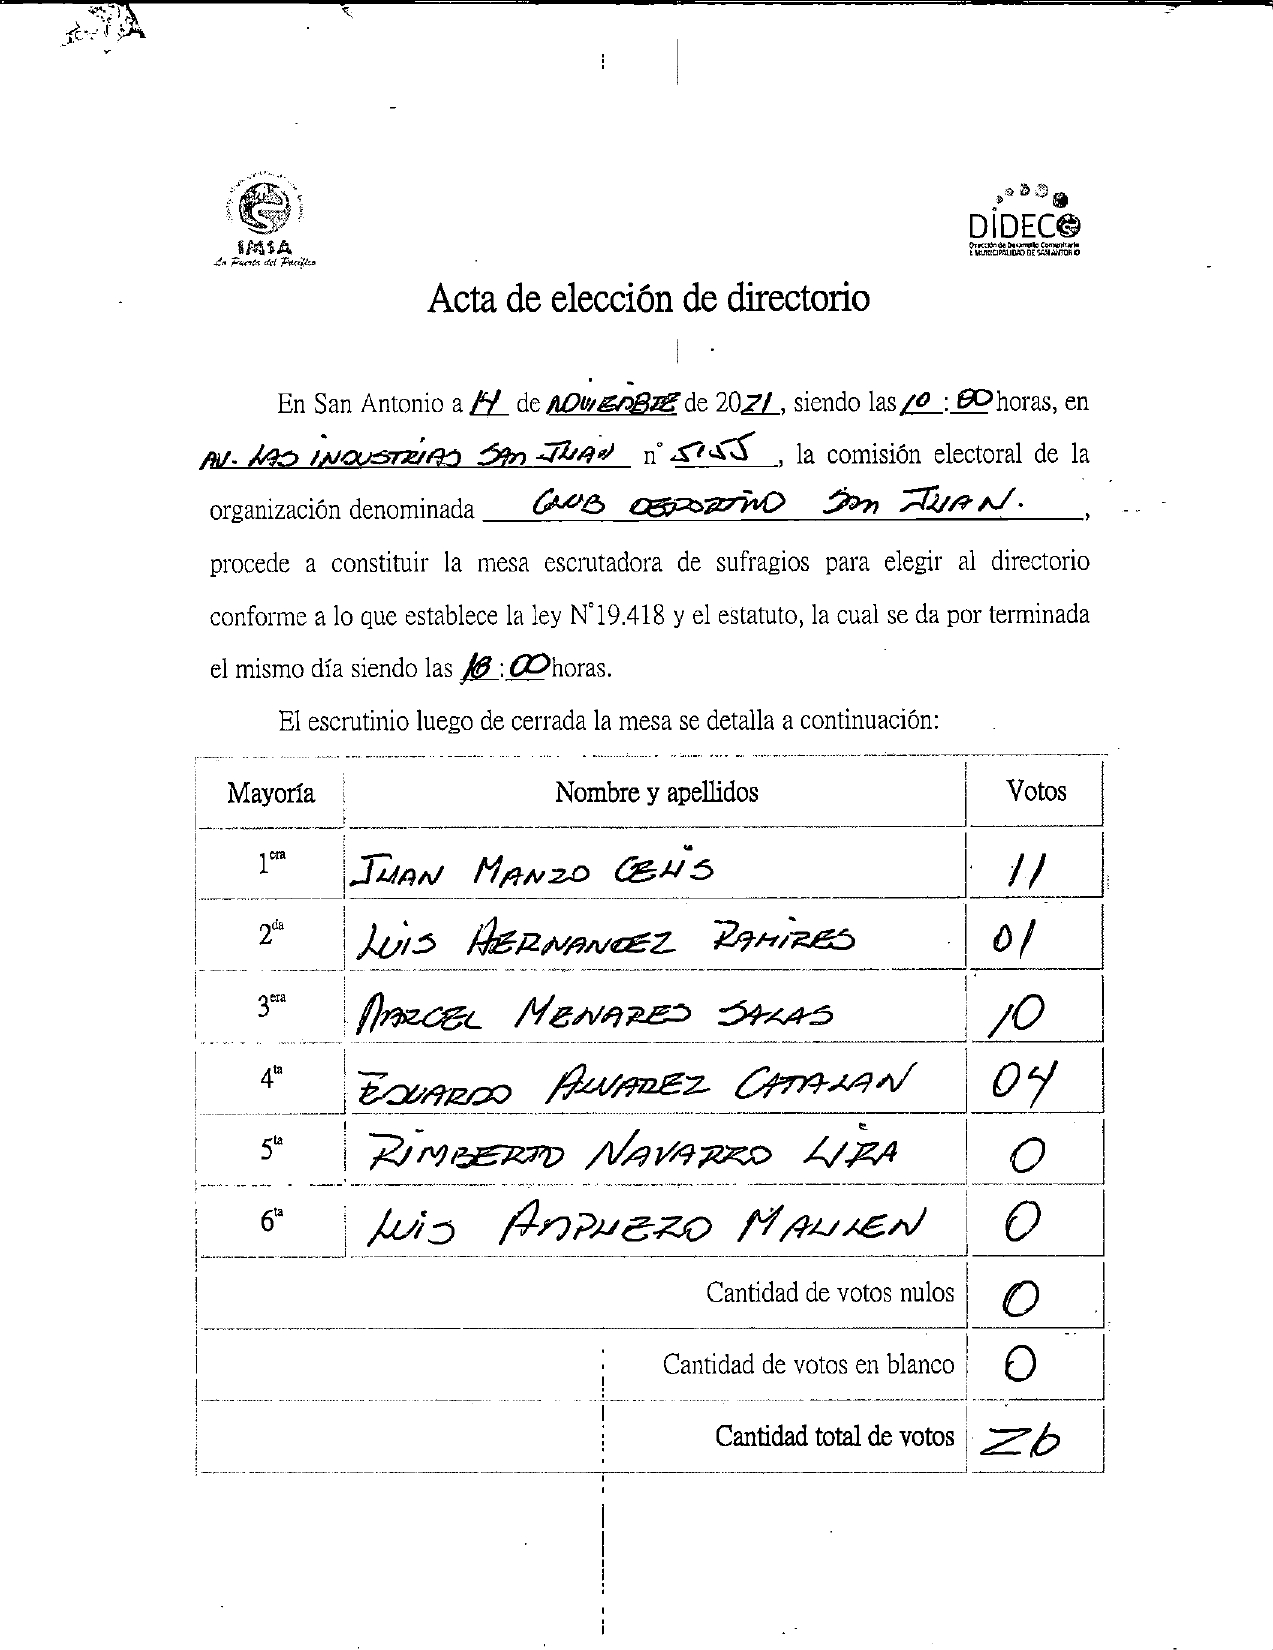 IMSA
La Puerta del Pacífico
DIDECO
Dirección de Desarrollo Comunitario
I. MUNICIPALIDAD DE SAN ANTONIO
Acta de elección de directorio
En San Antonio a 14 de NOVIEMBRE de 2021, siendo las 10 : 00 horas, en
AV. LAS INDUSTRIAS SAN JUAN n° 5155, la comisión electoral de la
organización denominada CLUB DEPORTIVO SAN JUAN.,
procede a constituir la mesa escrutadora de sufragios para elegir al directorio
conforme a lo que establece la ley N°19.418 y el estatuto, la cual se da por terminada
el mismo día siendo las 18 : 00 horas.
El escrutinio luego de cerrada la mesa se detalla a continuación:
Mayoría Nombre y apellidos Votos
1era JUAN MANZO CELIS 11
2da LUIS HERNANDEZ RAMIRES 01
3era MARCEL MENARES SALAS 10
4ta EDUARDO ALVAREZ CATALAN 04
5ta RIMBERTO NAVARRO LIRA 0
6ta LUIS MALLEN 0
Cantidad de votos nulos 0
Cantidad de votos en blanco 0
Cantidad total de votos 26